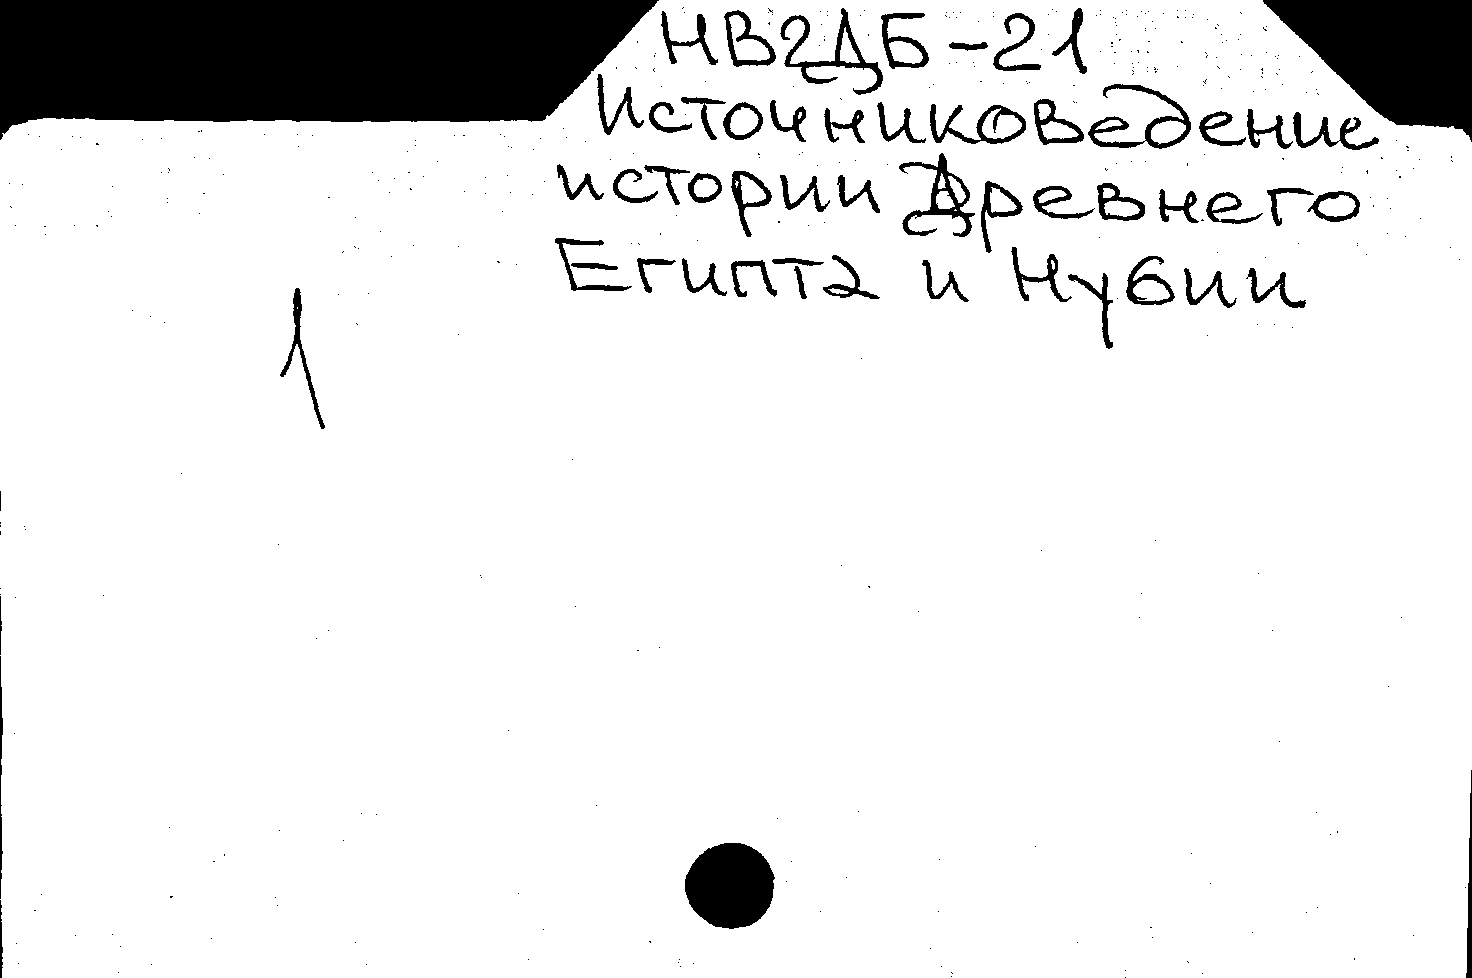 НВ2ДБ-21
Источниковедение
истории Древнего
Египта и Нубии